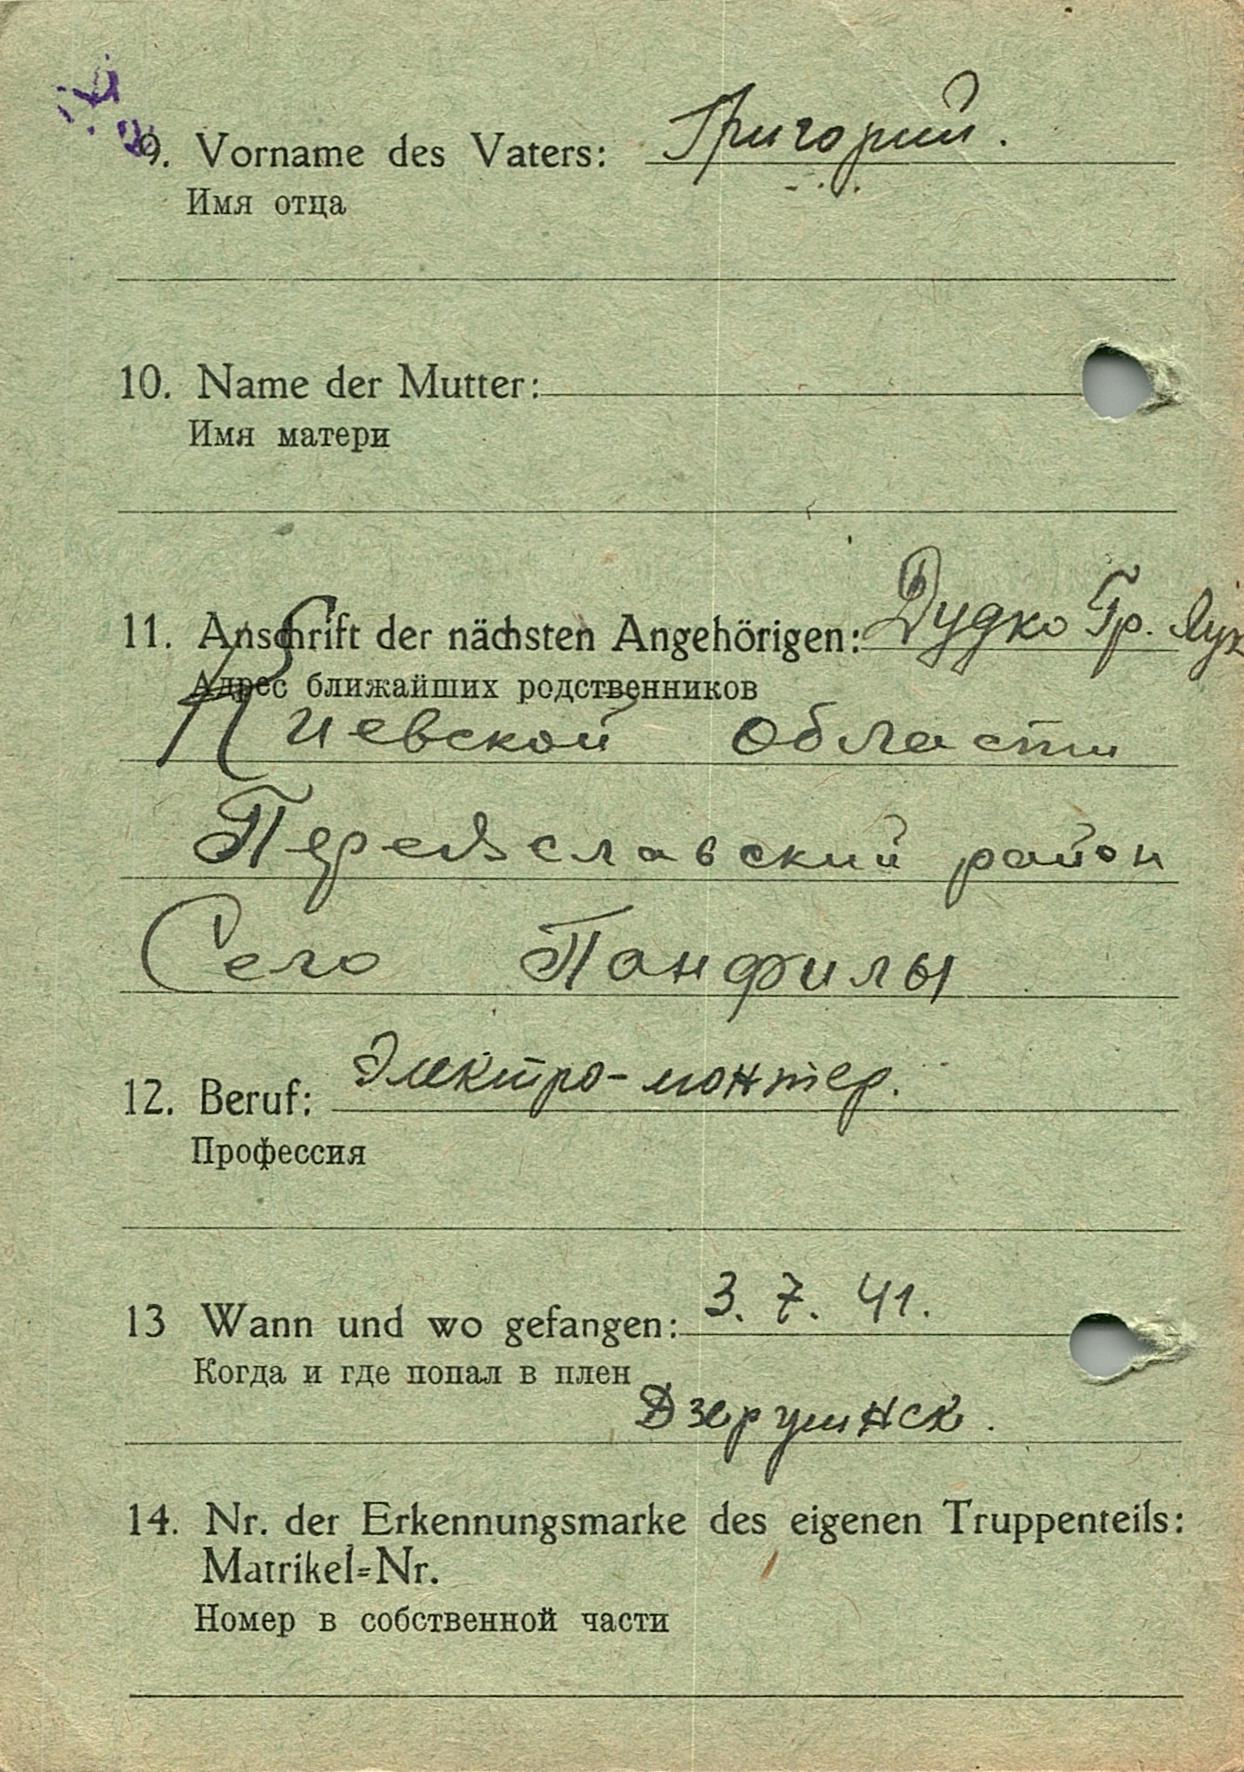 9. Vorname des Vaters: Григорий.
Имя отца
10. Name der Mutter:
Имя матери
11. Anschrift der nächsten Angehörigen: Дудко Гр. Лук
Адрес ближайших родственников
Киевской области
Переяславский район
Село Панфилы
12. Beruf: Электро-монтер.
Профессия
13 Wann und wo gefangen: 3. 7. 41.
Когда и где попал в плен
Дзерушнск.
14. Nr. der Erkennungsmarke des eigenen Truppenteils:
Matrikel=Nr.
Номер в собственной части